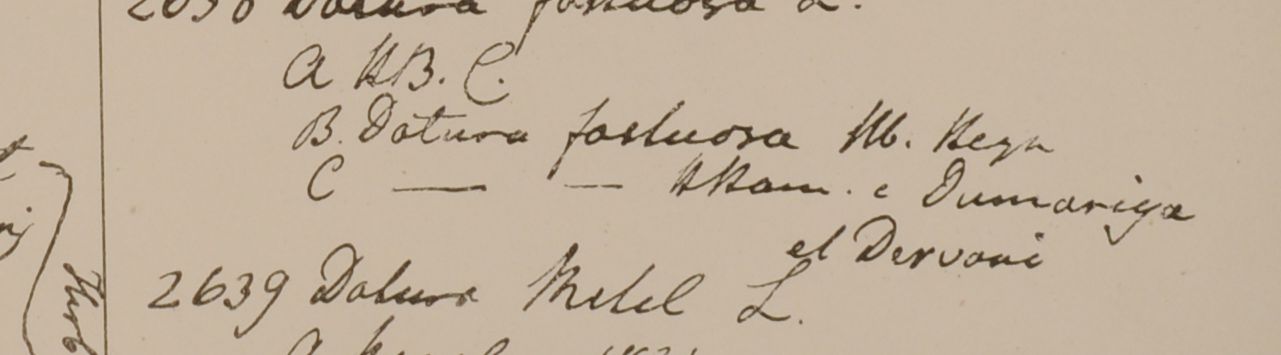 2638 Datura fastuosa L.
A HB. C.
B. Datura fastuosa Hb. Heyn
C — — HHam. e Dumariya
et Dervani
2639 Datura Metel L.
Herb